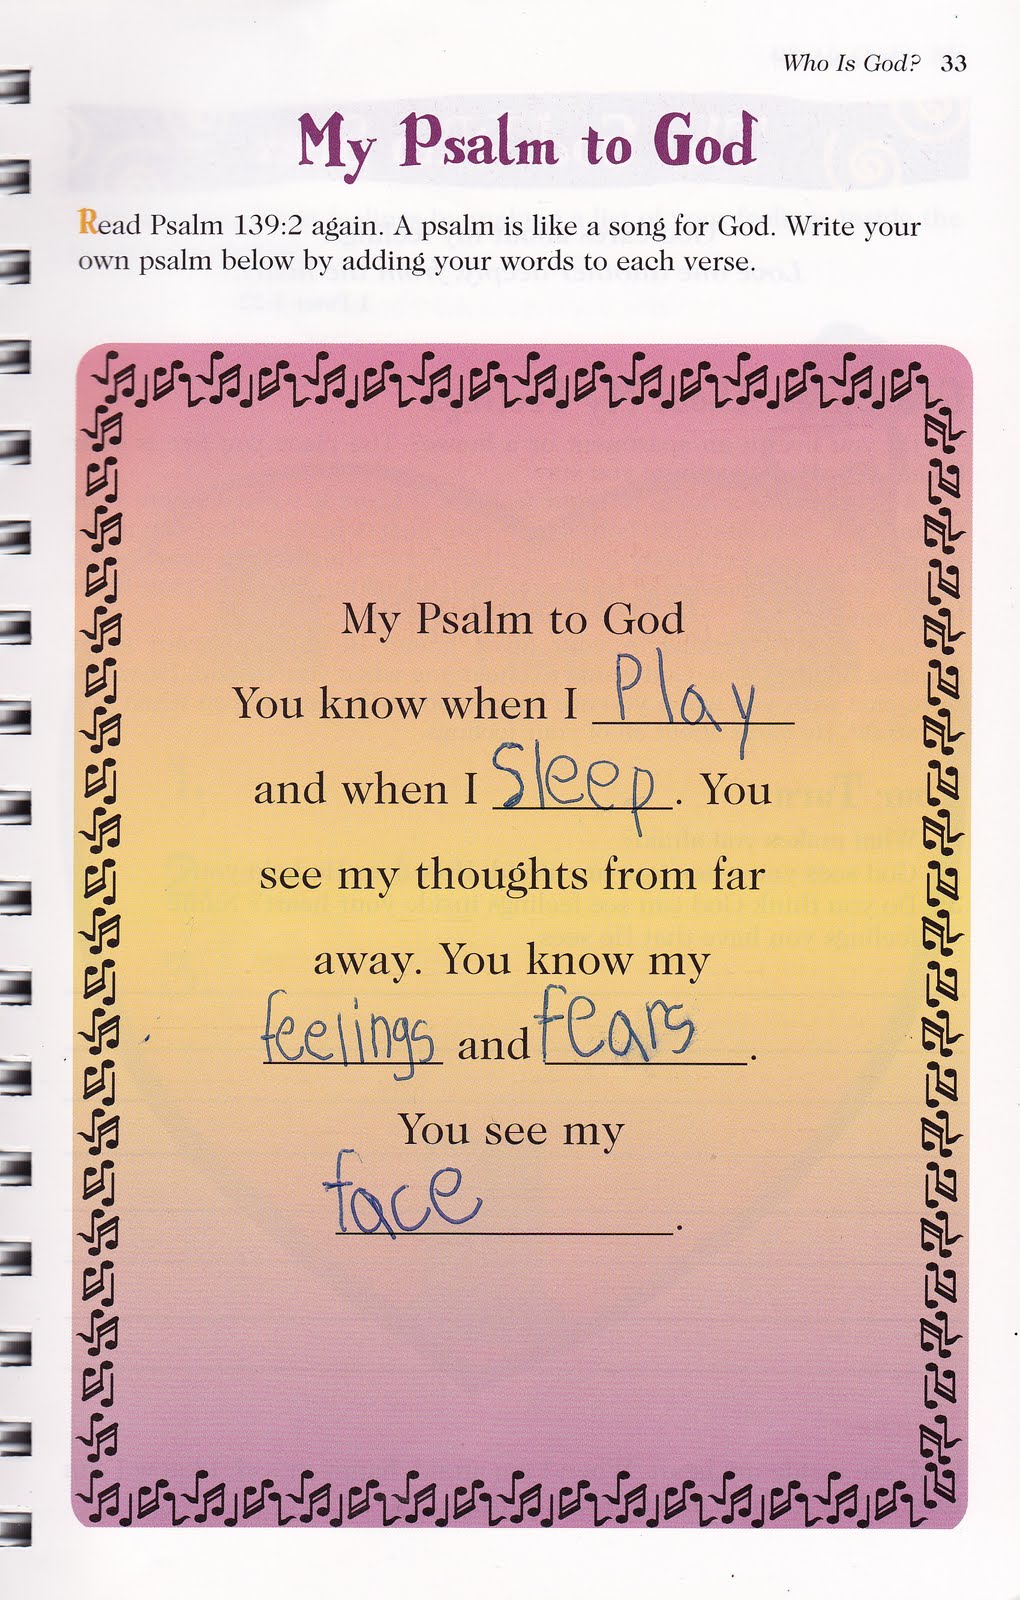 Who Is God? 33
My Psalm to God
Read Psalm 139:2 again. A psalm is like a song for God. Write your
own psalm below by adding your words to each verse.
My Psalm to God
You know when I Play
and when I Sleep. You
see my thoughts from far
away. You know my
feelings and fears.
You see my
face.